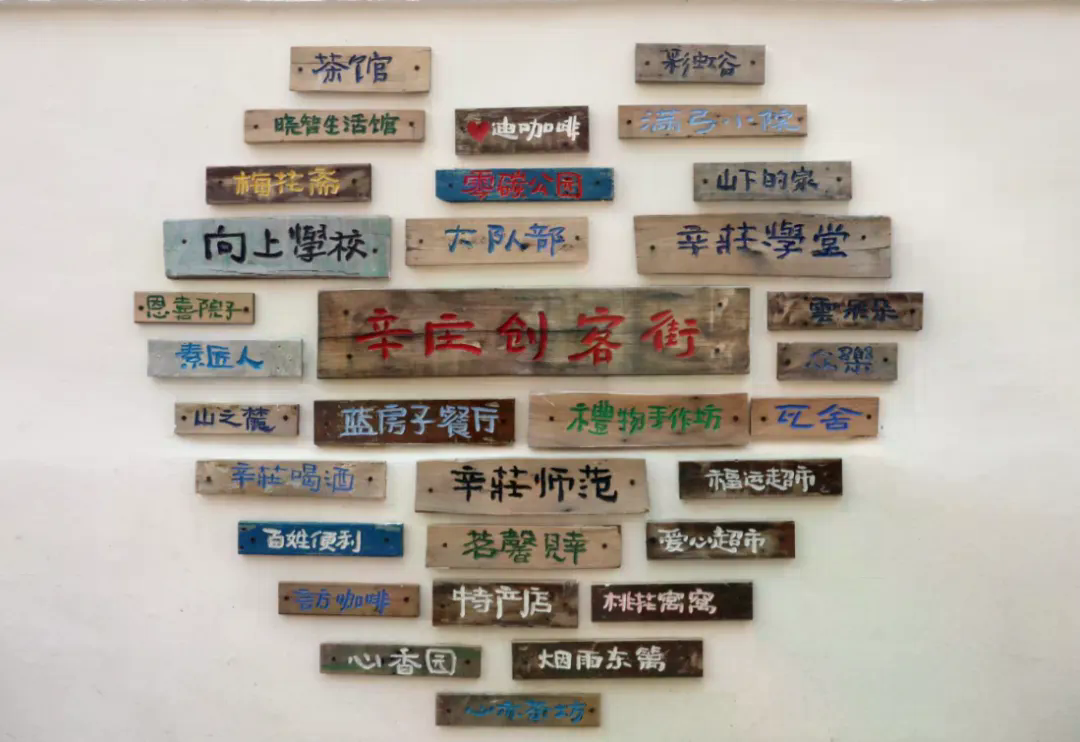 茶馆
彩虹谷
晓智生活馆
迪咖啡
满弓小院
梅荘斋
零碳公园
山下的家
向上學校
大队部
辛莊學堂
恩喜院子
辛庄创客街
雲飛朵
素匠人
众樂
山之麓
蓝房子餐厅
禮物手作坊
瓦舍
辛莊喝酒
辛莊师范
福运超市
百姓便利
茗馨見幸
爱心超市
官方咖啡
特产店
桃花窝窝
心香园
烟雨东篱